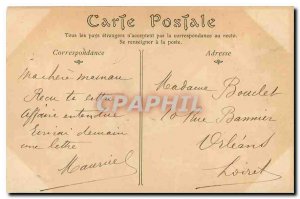 Carte Postale
Tous les pays étrangers n'acceptent pas la correspondance au recto.
Se renseigner à la poste.
Correspondance
Adresse
Ma chère maman
Reçu ta lettre
Affaire entendue
Envoi demain
une lettre
Maurice
Madame Bouclet
10 Rue Bannier
Orléans
Loiret
CPAPHIL.com